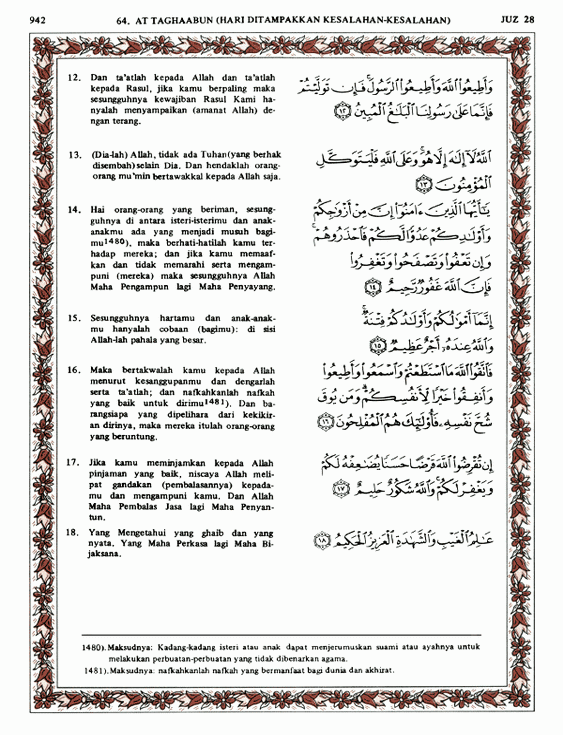 942
64. AT TAGHAABUN (HARI DITAMPAKKAN KESALAHAN-KESALAHAN)
JUZ 28
12. Dan ta'atlah kepada Allah dan ta'atlah
kepada Rasul, jika kamu berpaling maka
sesungguhnya kewajiban Rasul Kami ha-
nyalah menyampaikan (amanat Allah) de-
ngan terang.
وَأَطِيعُوا۟ ٱللَّهَ وَأَطِيعُوا۟ ٱلرَّسُولَ ۚ فَإِن تَوَلَّيْتُمْ
فَإِنَّمَا عَلَىٰ رَسُولِنَا ٱلْبَلَٰغُ ٱلْمُبِينُ ﴿١٢﴾
13. (Dia-lah) Allah, tidak ada Tuhan (yang berhak
disembah) selain Dia. Dan hendaklah orang-
orang mu'min bertawakkal kepada Allah saja.
ٱللَّهُ لَآ إِلَٰهَ إِلَّا هُوَ ۚ وَعَلَى ٱللَّهِ فَلْيَتَوَكَّلِ
ٱلْمُؤْمِنُونَ ﴿١٣﴾
14. Hai orang-orang yang beriman, sesung-
guhnya di antara isteri-isterimu dan anak-
anakmu ada yang menjadi musuh bagi-
mu1480), maka berhati-hatilah kamu ter-
hadap mereka; dan jika kamu memaaf-
kan dan tidak memarahi serta mengam-
puni (mereka) maka sesungguhnya Allah
Maha Pengampun lagi Maha Penyayang.
يَٰٓأَيُّهَا ٱلَّذِينَ ءَامَنُوٓا۟ إِنَّ مِنْ أَزْوَٰجِكُمْ
وَأَوْلَٰدِكُمْ عَدُوًّا لَّكُمْ فَٱحْذَرُوهُمْ ۚ
وَإِن تَعْفُوا۟ وَتَصْفَحُوا۟ وَتَغْفِرُوا۟
فَإِنَّ ٱللَّهَ غَفُورٌ رَّحِيمٌ ﴿١٤﴾
15. Sesungguhnya hartamu dan anak-anak-
mu hanyalah cobaan (bagimu): di sisi
Allah-lah pahala yang besar.
إِنَّمَآ أَمْوَٰلُكُمْ وَأَوْلَٰدُكُمْ فِتْنَةٌ ۚ
وَٱللَّهُ عِندَهُۥٓ أَجْرٌ عَظِيمٌ ﴿١٥﴾
16. Maka bertakwalah kamu kepada Allah
menurut kesanggupanmu dan dengarlah
serta ta'atlah; dan nafkahkanlah nafkah
yang baik untuk dirimu1481). Dan ba-
rangsiapa yang dipelihara dari kekikir-
an dirinya, maka mereka itulah orang-orang
yang beruntung.
فَٱتَّقُوا۟ ٱللَّهَ مَا ٱسْتَطَعْتُمْ وَٱسْمَعُوا۟ وَأَطِيعُوا۟
وَأَنفِقُوا۟ خَيْرًا لِّأَنفُسِكُمْ ۗ وَمَن يُوقَ
شُحَّ نَفْسِهِۦ فَأُو۟لَٰٓئِكَ هُمُ ٱلْمُفْلِحُونَ ﴿١٦﴾
17. Jika kamu meminjamkan kepada Allah
pinjaman yang baik, niscaya Allah meli-
pat gandakan (pembalasannya) kepada-
mu dan mengampuni kamu. Dan Allah
Maha Pembalas Jasa lagi Maha Penyan-
tun.
إِن تُقْرِضُوا۟ ٱللَّهَ قَرْضًا حَسَنًا يُضَٰعِفْهُ لَكُمْ
وَيَغْفِرْ لَكُمْ ۚ وَٱللَّهُ شَكُورٌ حَلِيمٌ ﴿١٧﴾
18. Yang Mengetahui yang ghaib dan yang
nyata. Yang Maha Perkasa lagi Maha Bi-
jaksana.
عَٰلِمُ ٱلْغَيْبِ وَٱلشَّهَٰدَةِ ٱلْعَزِيزُ ٱلْحَكِيمُ ﴿١٨﴾
1480). Maksudnya: Kadang-kadang isteri atau anak dapat menjerumuskan suami atau ayahnya untuk
melakukan perbuatan-perbuatan yang tidak dibenarkan agama.
1481). Maksudnya: nafkahkanlah nafkah yang bermanfaat bagi dunia dan akhirat.